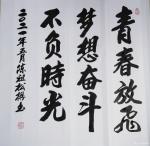 青春放飛
梦想奋斗
不负時光
二〇二一年五月陈祖松